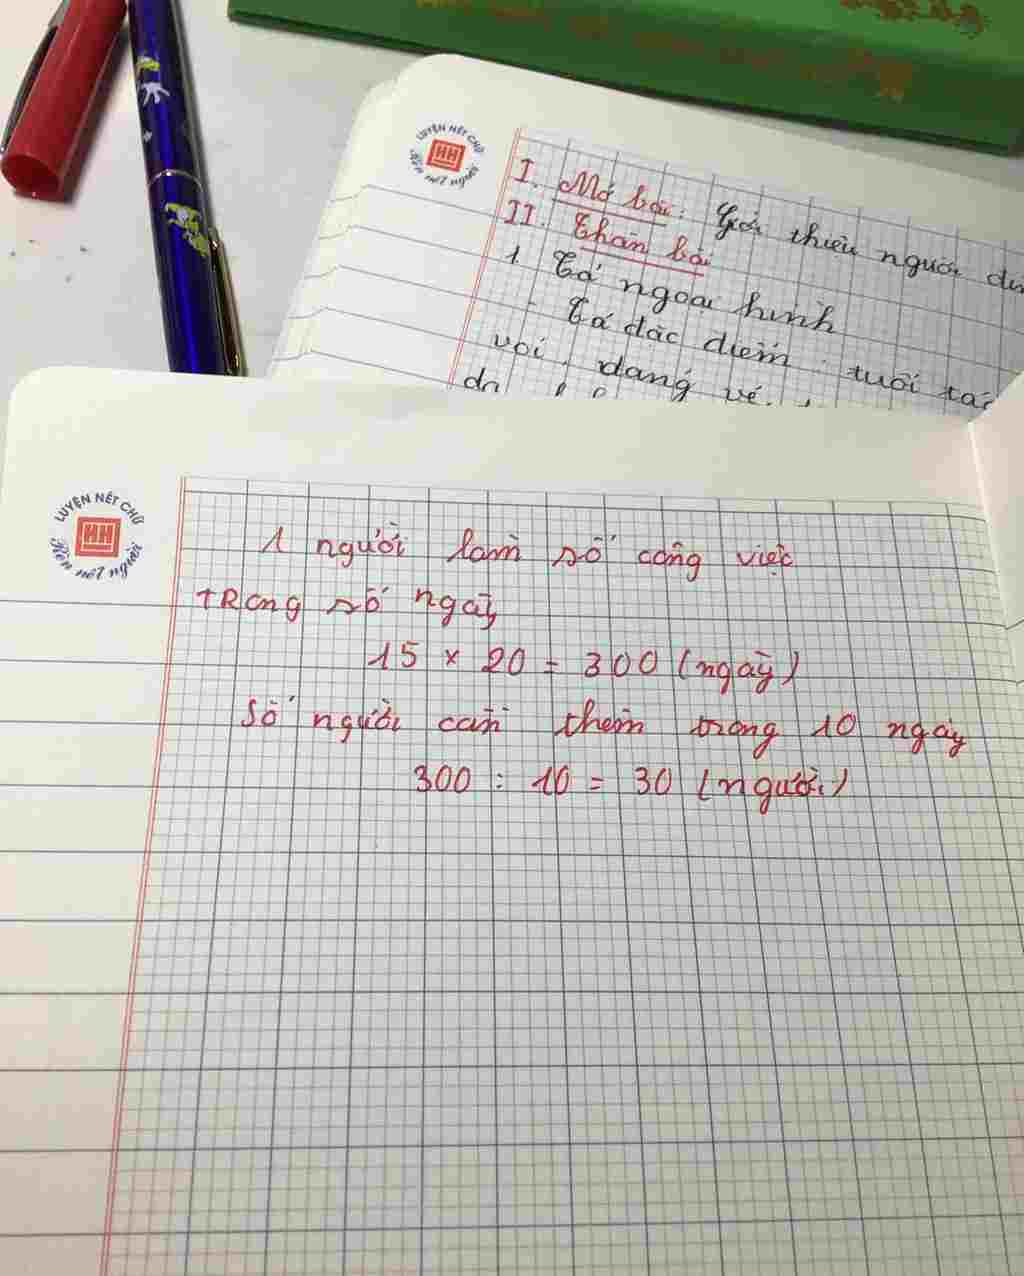 LUYỆN NÉT CHỮ
HH
Rèn nết người
I. Mở bài: Giới thiệu người
II. Thân bài
1. Tả ngoại hình
- Tả đặc điểm: tuổi tác
vọi, dáng vẻ,
LUYỆN NÉT CHỮ
HH
Rèn nết người
1 người làm số công việc
tRong số ngày
15 × 20 = 300 (ngày)
Số người cần thêm trong 10 ngày
300 : 10 = 30 (người)